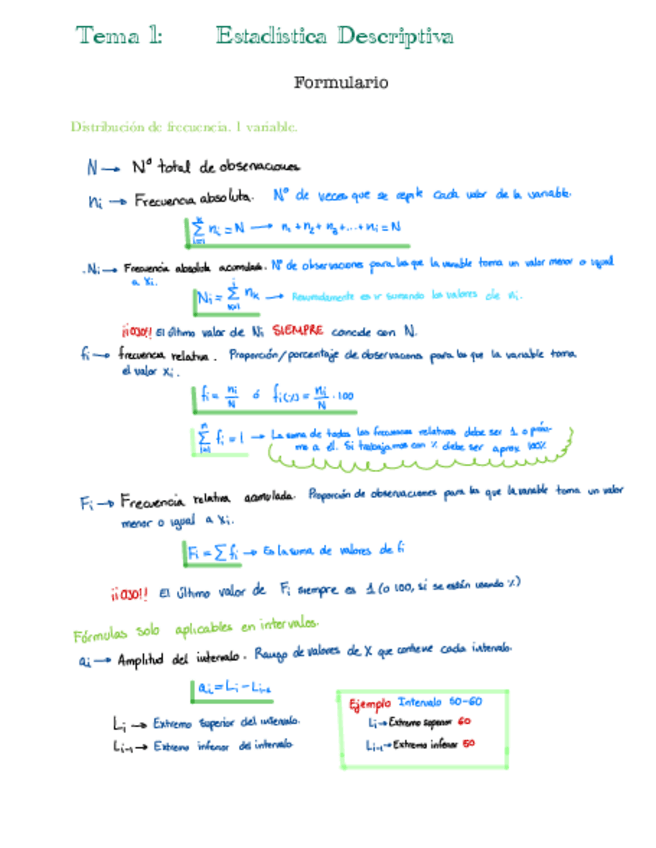 Tema 1: Estadística Descriptiva
Formulario
Distribución de frecuencia. 1 variable.
N → Nº total de observaciones
ni → Frecuencia absoluta. Nº de veces que se repite cada valor de la variable.
∑ ni = N → n1 + n2 + n3 + ... + ni = N
.Ni → Frecuencia absoluta acumulada. Nº de observaciones para las que la variable toma un valor menor o igual
a xi.
Ni = ∑ nk → Resumidamente es ir sumando los valores de ni.
¡¡OJO!! El último valor de Ni SIEMPRE coincide con N.
fi → frecuencia relativa. Proporción/porcentaje de observaciones para las que la variable toma
el valor xi.
fi = ni/N ó fi(%) = ni/N · 100
∑ fi = 1 → La suma de todas las frecuencias relativas debe ser 1 o próxi-
mo a él. Si trabajamos con % debe ser aprox 100%
Fi → Frecuencia relativa acumulada. Proporción de observaciones para las que la variable toma un valor
menor o igual a xi.
Fi = ∑ fi → Es la suma de valores de fi
¡¡OJO!! El último valor de Fi siempre es 1 (o 100, si se están usando %)
Fórmulas solo aplicables en intervalos.
ai → Amplitud del intervalo. Rango de valores de X que contiene cada intervalo.
ai = Li - Li-1
Li → Extremo superior del intervalo.
Li-1 → Extremo inferior del intervalo
Ejemplo Intervalo 50-60
Li → Extremo superior 60
Li-1 → Extremo inferior 50